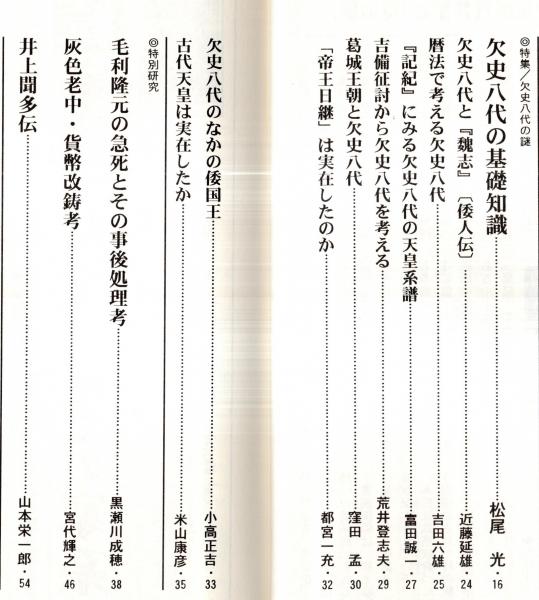 ◎特集／欠史八代の謎
欠史八代の基礎知識………松尾 光・16
欠史八代と『魏志』〔倭人伝〕………近藤延雄・24
暦法で考える欠史八代………吉田六雄・25
『記紀』にみる欠史八代の天皇系譜………富田誠一・27
吉備征討から欠史八代を考える………荒井登志夫・29
葛城王朝と欠史八代………窪田 孟・30
「帝王日継」は実在したのか………都宮一充・32
欠史八代のなかの倭国王………小高正吉・33
古代天皇は実在したか………米山康彦・35
◎特別研究
毛利隆元の急死とその事後処理考………黒瀬川成穂・38
灰色老中・貨幣改鋳考………宮代輝之・46
井上聞多伝………山本栄一郎・54